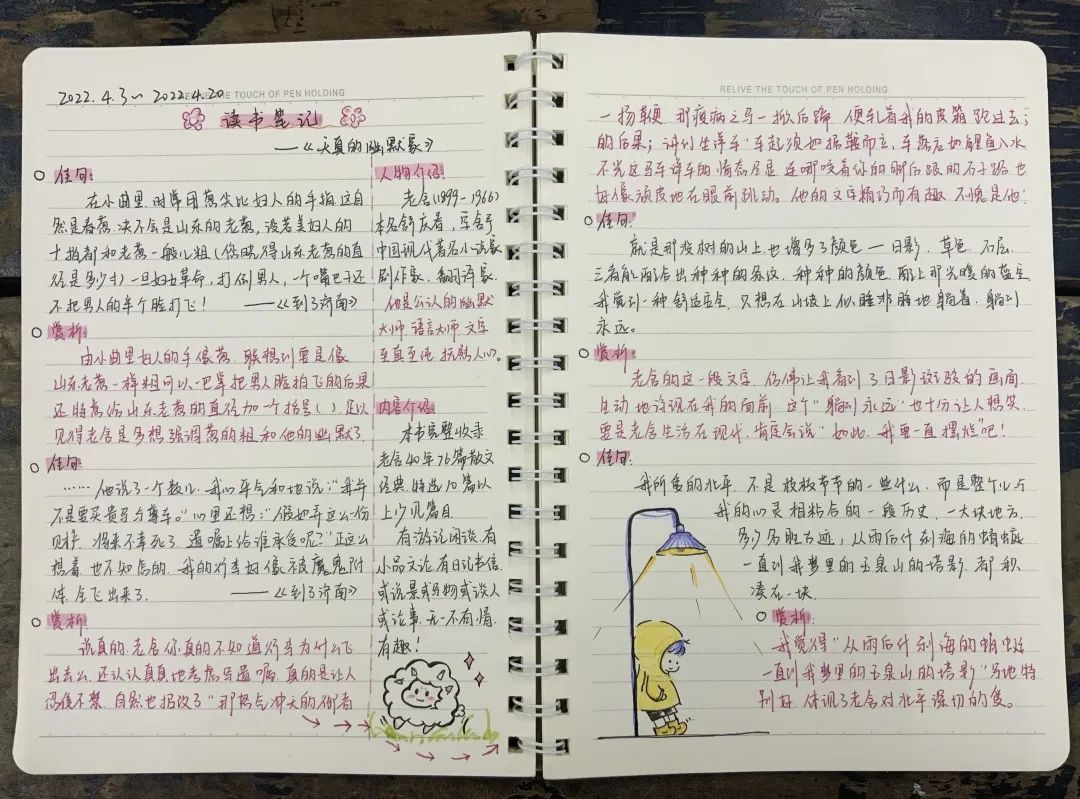 RELIVE THE TOUCH OF PEN HOLDING
2022.4.3~2022.4.20
读书笔记
——《天真的幽默家》
佳句:
在小曲里,时常用葱尖比妇人的手指,这自
然是春葱,决不会是山东的老葱,设若美妇人的
十指都和老葱一般儿粗(你晓得山东老葱的直
径是多少寸)一旦妇女革命,打倒男人,一个嘴巴子还
不把男人的半个脸打飞!——《到了济南》
赏析:
由小曲里妇人的手像葱,联想到要是像
山东老葱一样粗可以一巴掌把男人脸拍飞的后果
还特意给山东老葱的直径加一个括号(),足以
见得老舍是多想强调葱的粗和他的幽默了
佳句:
……他说了一个数儿,我心平气和地说:“我并
不是要买贵马与尊车。”心里还想:“假如弄这么一份
财产,将来不幸死了,遗嘱上给谁承受呢?”正这么
想着,也不知怎的,我的行李好像被魔鬼附
体,全飞出来了。——《到了济南》
赏析:
说真的,老舍你真的不知道行李为什么飞
出去么,还认认真真地考虑写遗嘱,真的是让人
忍俊不禁,自然也招致了“那怒气冲天的御者
人物介绍:
老舍(1899-1966)
本名舒庆春,字舍予,
中国现代著名小说家
剧作家、翻译家,
他是公认的幽默
大师,语言大师,文字
至真至纯,抚慰人心。
内容介绍:
本书完整收录
老舍40年76篇散文
经典,特选10篇以
上少见篇目
有游记闲谈,有
小品文论,有日记书信,
或说景或写物或谈人
或论事,无一不有情,
有趣!
RELIVE THE TOUCH OF PEN HOLDING
一扬鞭,那瘦病之马一掀后蹄,便轧着我的皮箱跑过去”
的后果;讲到坐洋车“车起须如据鞍而立,车落应如鲤鱼入水”
不光这马车洋车的情态尽显,连那咬着你的脚后跟的石子路也
好像顽皮地在眼前跳动。他的文字精巧而有趣,不愧是他!
佳句:
就是那没树的山上,也增多了颜色——日影、草色、石层,
三者能配合出种种的条纹,种种的颜色。配上那光暖的蓝空
我觉到一种舒适安全,只想在山坡上似睡非睡地躺着,躺到
永远。
赏析:
老舍的这一段文字,仿佛让我看到了日影斑驳的画面
生动地浮现在我的面前,这个“躺到永远”也十分让人想笑,
要是老舍生活在现代,肯定会说“如此,我要一直摆烂吧!
佳句:
我所爱的北平,不是枝枝节节的一些什么,而是整个儿与
我的心灵相粘合的一段历史,一大块地方,
多少名胜古迹,从雨后什刹海的蜻蜓
一直到我梦里的玉泉山的塔影,都积
凑在一块
赏析:
我觉得“从雨后什刹海的蜻蜓
一直到我梦里的玉泉山的塔影”写地特
别好,体现了老舍对北平深切的爱。